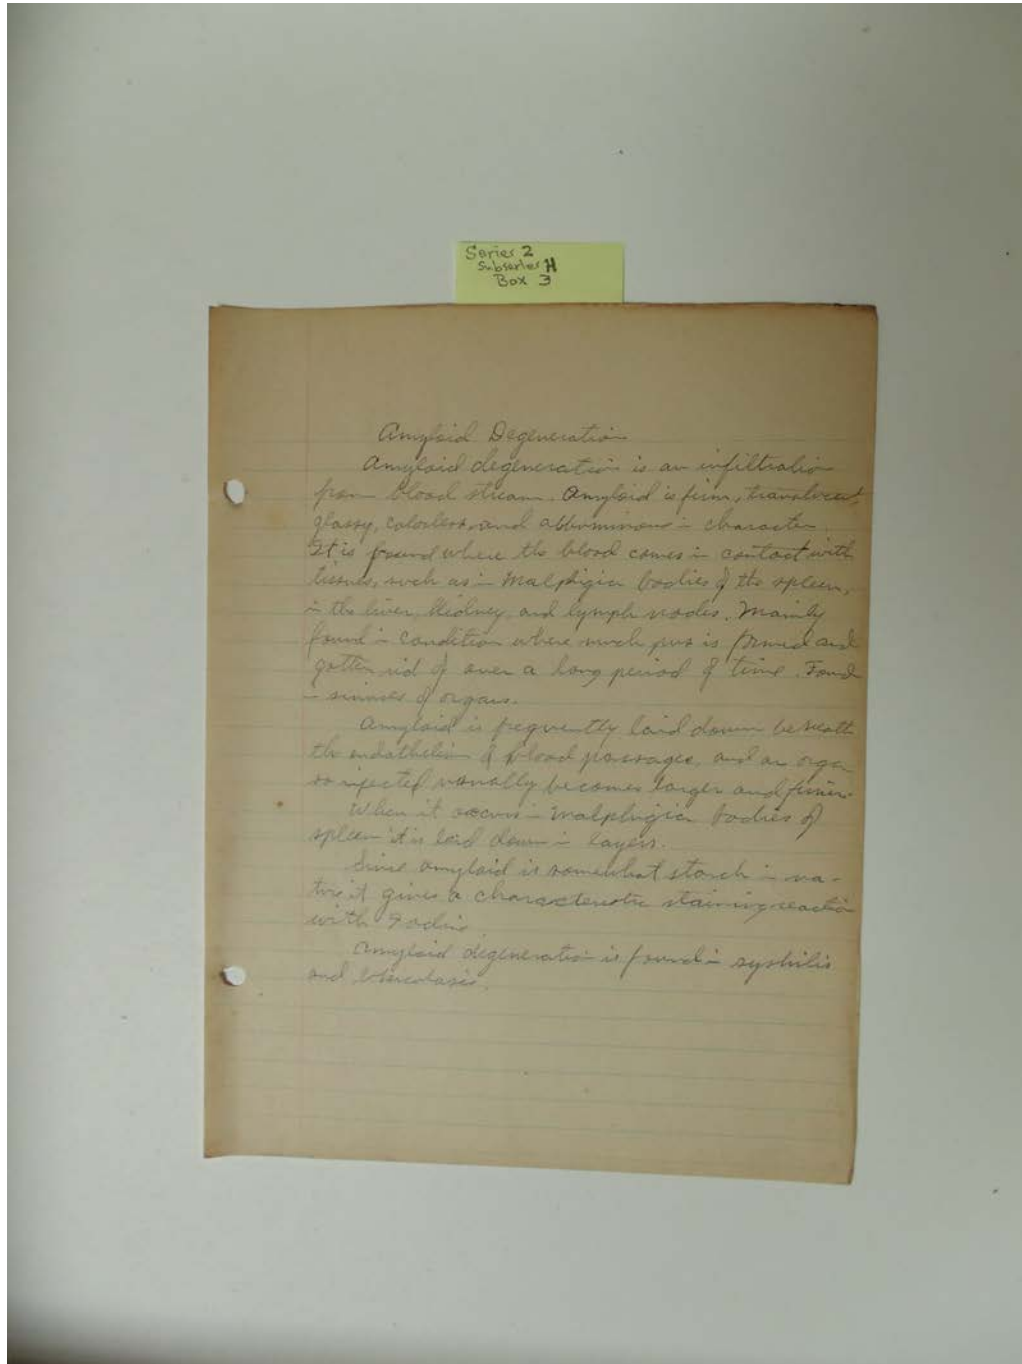 Series 2
Subseries H
Box 3
Amyloid Degeneration
Amyloid degeneration is an infiltration
from blood stream. Amyloid is firm, translucent,
glassy, colorless, and albuminous in character.
It is found where the blood comes in contact with
tissues, such as in Malphigian bodies of the spleen,
in the liver, kidney, and lymph nodes. Mainly
found in condition where much pus is formed and
gotten rid of over a long period of time. Found
in sinuses of organs.
Amyloid is frequently laid down beneath
the endothelium of blood passages, and an organ
so usually becomes larger and firmer.
When it occurs in Malphigian bodies of
spleen it is laid down in layers.
Since amyloid is somewhat starch in na-
ture it gives a characteristic staining reaction
with Iodine
Amyloid degeneration is found in syphilis
and tuberculosis.